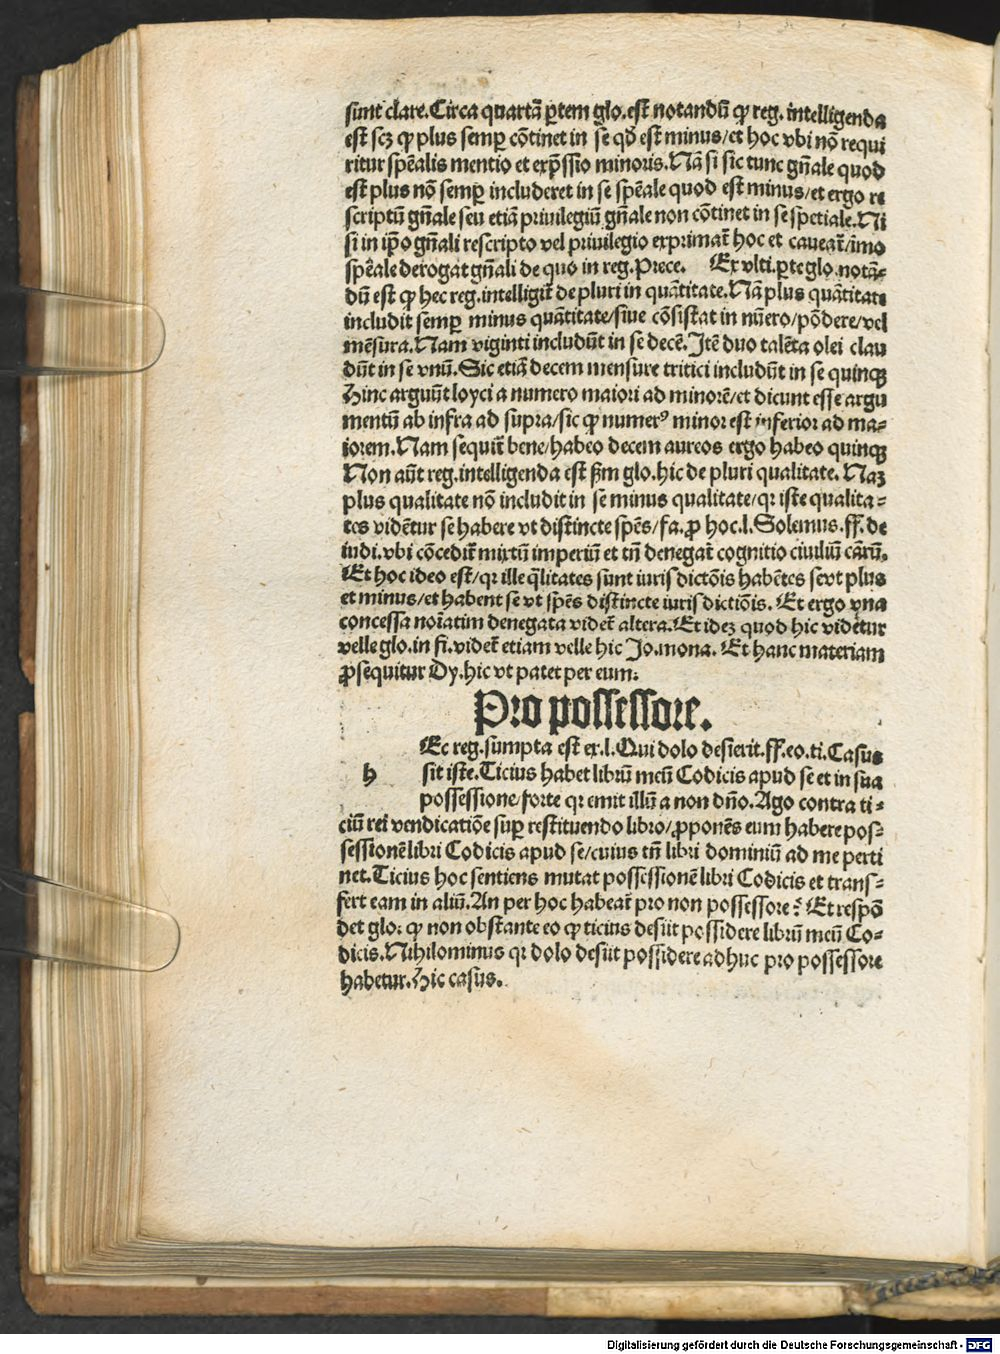 sunt clare. Circa quartā ꝑtem glo. est notandū ꝙ reg. intelligenda
est scꝫ ꝙ plus semꝑ cōtinet in se qđ est minus/et hoc vbi nō requi
ritur spēalis mentio et exp̄ssio minoris. Nā si sic tunc gn̄ale quod
est plus nō semꝑ includeret in se spēale quod est minus/et ergo re
scriptū gn̄ale seu etiā priuilegiū gn̄ale non cōtinet in se spetiale. Ni
si in ip̄o gn̄ali rescripto vel priuilegio exprimat̄ hoc et caueat̄/imo
spēale derogat gn̄ali de quo in reg. Prece. Ex vlti. ꝑte glo. notā⸗
dū est ꝙ hec reg. intelligit̄ de pluri in quātitate. Nā plus quātitate
includit semꝑ minus quātitate/siue cōsistat in nūero/pōdere/vel
mēsura. Nam viginti includūt in se decē. Itē duo talēta olei clau
dūt in se vnū. Sic etiā decem mensure tritici includūt in se quinqꝫ
Hinc arguūt loyci a numero maiori ad minorē/et dicunt esse argu
mentū ab infra ad supra/sic ꝙ numerꝰ minor est inferior ad ma⸗
iorem. Nam sequit̄ bene/habeo decem aureos ergo habeo quinqꝫ
Non aūt reg. intelligenda est ẜm glo. hic de pluri qualitate. Naꝫ
plus qualitate nō includit in se minus qualitate/qꝛ iste qualita⸗
tes vidētur se habere vt distincte spēs/fa. ꝓ hoc. l. Solemus. ff. de
iudi. vbi cōcedit̄ mixtū imperiū et tn̄ denegat̄ cognitio ciuiliū cārū.
Et hoc ideo est/qꝛ ille q̄litates sunt iurisdictōis habētes se vt plus
et minus/et habent se vt spēs distincte iurisdictiōis. Et ergo vna
concessa noīatim denegata videt̄ altera. Et ideꝫ quod hic vidētur
velle glo. in fi. videt̄ etiam velle hic Jo. mona. Et hanc materiam
ꝓsequitur Dy. hic vt patet per eum.
Pro possessore.
Ec reg. sumpta est ex. l. Qui dolo desierit. ff. eo. ti. Casus
h sit iste. Ticius habet librū meū Codicis apud se et in sua
possessione/forte qꝛ emit illū a non dn̄o. Ago contra ti⸗
ciū rei vendicatiōe suꝑ restituendo libro/ꝓponēs eum habere pos⸗
sessionē libri Codicis apud se/cuius tn̄ libri dominiū ad me perti
net. Ticius hoc sentiens mutat possessionē libri Codicis et trans⸗
fert eam in aliū. An per hoc habeat̄ pro non possessore? Et respō
det glo: ꝙ non obstante eo ꝙ ticius desiit possidere librū meū Co⸗
dicis. Nihilominus qꝛ dolo desiit possidere adhuc pro possessore
habetur. Hic casus.
Digitalisierung gefördert durch die Deutsche Forschungsgemeinschaft - DFG